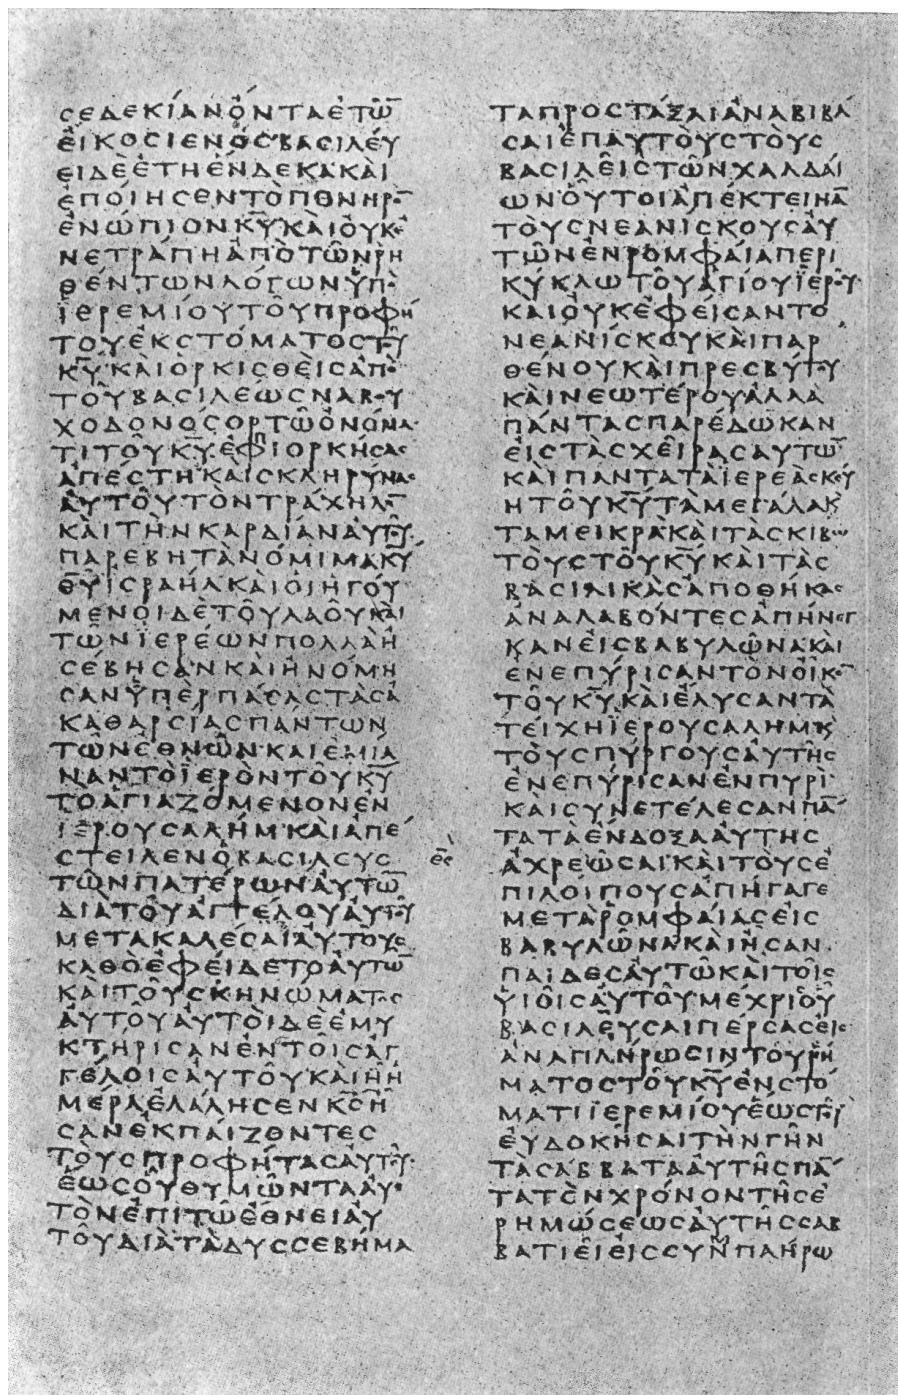 ΣΕΔΕΚΙΑΝΟΝΤΑΕΤΩ̅
ΕΙΚΟΣΙΕΝΟΣΒΑΣΙΛΕΥ
ΕΙΔΕΕΤΗΕΝΔΕΚΑΚΑΙ
ΕΠΟΙΗΣΕΝΤΟΠΟΝΗΡΟ̅
ΕΝΩΠΙΟΝΚ̅Υ̅ΚΑΙΟΥΚΕ
ΝΕΤΡΑΠΗΑΠΟΤΩΝΡΗ
ΘΕΝΤΩΝΛΟΓΩΝΫΠΟ
ΪΕΡΕΜΙΟΥΤΟΥΠΡΟΦΗ
ΤΟΥΕΚΣΤΟΜΑΤΟΣΤΟΥ
Κ̅Υ̅ΚΑΙΟΡΚΙΣΘΕΙΣΑΠΟ
ΤΟΥΒΑΣΙΛΕΩΣΝΑΒΟΥ
ΧΟΔΟΝΟΣΟΡΤΩΟΝΟΜΑ
ΤΙΤΟΥΚ̅Υ̅ΕΦΙΟΡΚΗΣΑΣ
ΑΠΕΣΤΗΚΑΙΣΚΛΗΡΥΝΑΣ
ΑΥΤΟΥΤΟΝΤΡΑΧΗΛΟ̅
ΚΑΙΤΗΝΚΑΡΔΙΑΝΑΥΤΟΥ
ΠΑΡΕΒΗΤΑΝΟΜΙΜΑΚ̅Υ̅
Θ̅Υ̅ΙΣΡΑΗΛΚΑΙΟΙΗΓΟΥ
ΜΕΝΟΙΔΕΤΟΥΛΑΟΥΚΑΙ
ΤΩΝΪΕΡΕΩΝΠΟΛΛΑΗ
ΣΕΒΗΣΑΝΚΑΙΗΝΟΜΗ
ΣΑΝΫΠΕΡΠΑΣΑΣΤΑΣΑ
ΚΑΘΑΡΣΙΑΣΠΑΝΤΩΝ
ΤΩΝΕΘΝΩΝΚΑΙΕΜΙΑ
ΝΑΝΤΟΪΕΡΟΝΤΟΥΚ̅Υ̅
ΤΟΑΓΙΑΖΟΜΕΝΟΝΕΝ
ΙΕΡΟΥΣΑΛΗΜΚΑΙΑΠΕ
ΣΤΕΙΛΕΝΟΒΑΣΙΛΕΥΣ
ΤΩΝΠΑΤΕΡΩΝΑΥΤΩ̅
ΔΙΑΤΟΥΑΓΓΕΛΟΥΑΥΤΟΥ
ΜΕΤΑΚΑΛΕΣΑΙΑΥΤΟΥΣ
ΚΑΘΟΕΦΕΙΔΕΤΟΑΥΤΩ̅
ΚΑΙΤΟΥΣΚΗΝΩΜΑΤΟΣ
ΑΥΤΟΥΑΥΤΟΙΔΕΕΜΥ
ΚΤΗΡΙΣΑΝΕΝΤΟΙΣΑΓ
ΓΕΛΟΙΣΑΥΤΟΥΚΑΙΗΗ
ΜΕΡΑΕΛΑΛΗΣΕΝΚ̅Σ̅Η
ΣΑΝΕΚΠΑΙΖΟΝΤΕΣ
ΤΟΥΣΠΡΟΦΗΤΑΣΑΥΤΟΥ
ΕΩΣΟΥΘΥΜΩΝΤΑΑΥ
ΤΟΝΕΠΙΤΩΕΘΝΕΙΑΥ
ΤΟΥΔΙΑΤΑΔΥΣΣΕΒΗΜΑ
ΤΑΠΡΟΣΤΑΞΑΙΑΝΑΒΙΒΑ
ΣΑΙΕΠΑΥΤΟΥΣΤΟΥΣ
ΒΑΣΙΛΕΙΣΤΩΝΧΑΛΔΑΙ
ΩΝΟΥΤΟΙΑΠΕΚΤΕΙΝΑ̅
ΤΟΥΣΝΕΑΝΙΣΚΟΥΣΑΥ
ΤΩΝΕΝΡΟΜΦΑΙΑΠΕΡΙ
ΚΥΚΛΩΤΟΥΑΓΙΟΥΪΕΡΟΥ
ΚΑΙΟΥΚΕΦΕΙΣΑΝΤΟ
ΝΕΑΝΙΣΚΟΥΚΑΙΠΑΡ
ΘΕΝΟΥΚΑΙΠΡΕΣΒΥΤΟΥ
ΚΑΙΝΕΩΤΕΡΟΥΑΛΛΑ
ΠΑΝΤΑΣΠΑΡΕΔΩΚΑΝ
ΕΙΣΤΑΣΧΕΙΡΑΣΑΥΤΩ̅
ΚΑΙΠΑΝΤΑΤΑΪΕΡΕΑΣΚΕΥ
ΗΤΟΥΚ̅Υ̅ΤΑΜΕΓΑΛΑΚ
ΤΑΜΕΙΚΡΑΚΑΙΤΑΣΚΙΒΩ
ΤΟΥΣΤΟΥΚ̅Υ̅ΚΑΙΤΑΣ
ΒΑΣΙΛΙΚΑΣΑΠΟΘΗΚΑΣ
ΑΝΑΛΑΒΟΝΤΕΣΑΠΗΝΕΓ
ΚΑΝΕΙΣΒΑΒΥΛΩΝΑΚΑΙ
ΕΝΕΠΥΡΙΣΑΝΤΟΝΟΙΚΟ̅
ΤΟΥΚ̅Υ̅ΚΑΙΕΛΥΣΑΝΤΑ
ΤΕΙΧΗΪΕΡΟΥΣΑΛΗΜΚ
ΤΟΥΣΠΥΡΓΟΥΣΑΥΤΗΣ
ΕΝΕΠΥΡΙΣΑΝΕΝΠΥΡΙ
ΚΑΙΣΥΝΕΤΕΛΕΣΑΝΠΑ̅
ΤΑΤΑΕΝΔΟΞΑΑΥΤΗΣ
ΑΧΡΕΩΣΑΙΚΑΙΤΟΥΣΕ
ΠΙΛΟΙΠΟΥΣΑΠΗΓΑΓΕ
ΜΕΤΑΡΟΜΦΑΙΑΣΕΙΣ
ΒΑΒΥΛΩΝΑΚΑΙΗΣΑΝ
ΠΑΙΔΕΣΑΥΤΩΚΑΙΤΟΙΣ
ΥΙΟΙΣΑΥΤΟΥΜΕΧΡΙΟΥ
ΒΑΣΙΛΕΥΣΑΙΠΕΡΣΑΣΕΙΣ
ΑΝΑΠΛΗΡΩΣΙΝΤΟΥΡΗ
ΜΑΤΟΣΤΟΥΚ̅Υ̅ΕΝΣΤΟ
ΜΑΤΙΪΕΡΕΜΙΟΥΕΩΣΤΟΥ
ΕΥΔΟΚΗΣΑΙΤΗΝΓΗΝ
ΤΑΣΑΒΒΑΤΑΑΥΤΗΣΠΑ̅
ΤΑΤΟΝΧΡΟΝΟΝΤΗΣΕ
ΡΗΜΩΣΕΩΣΑΥΤΗΣΣΑΒ
ΒΑΤΙΕΙΕΙΣΣΥΝΠΛΗΡΩ